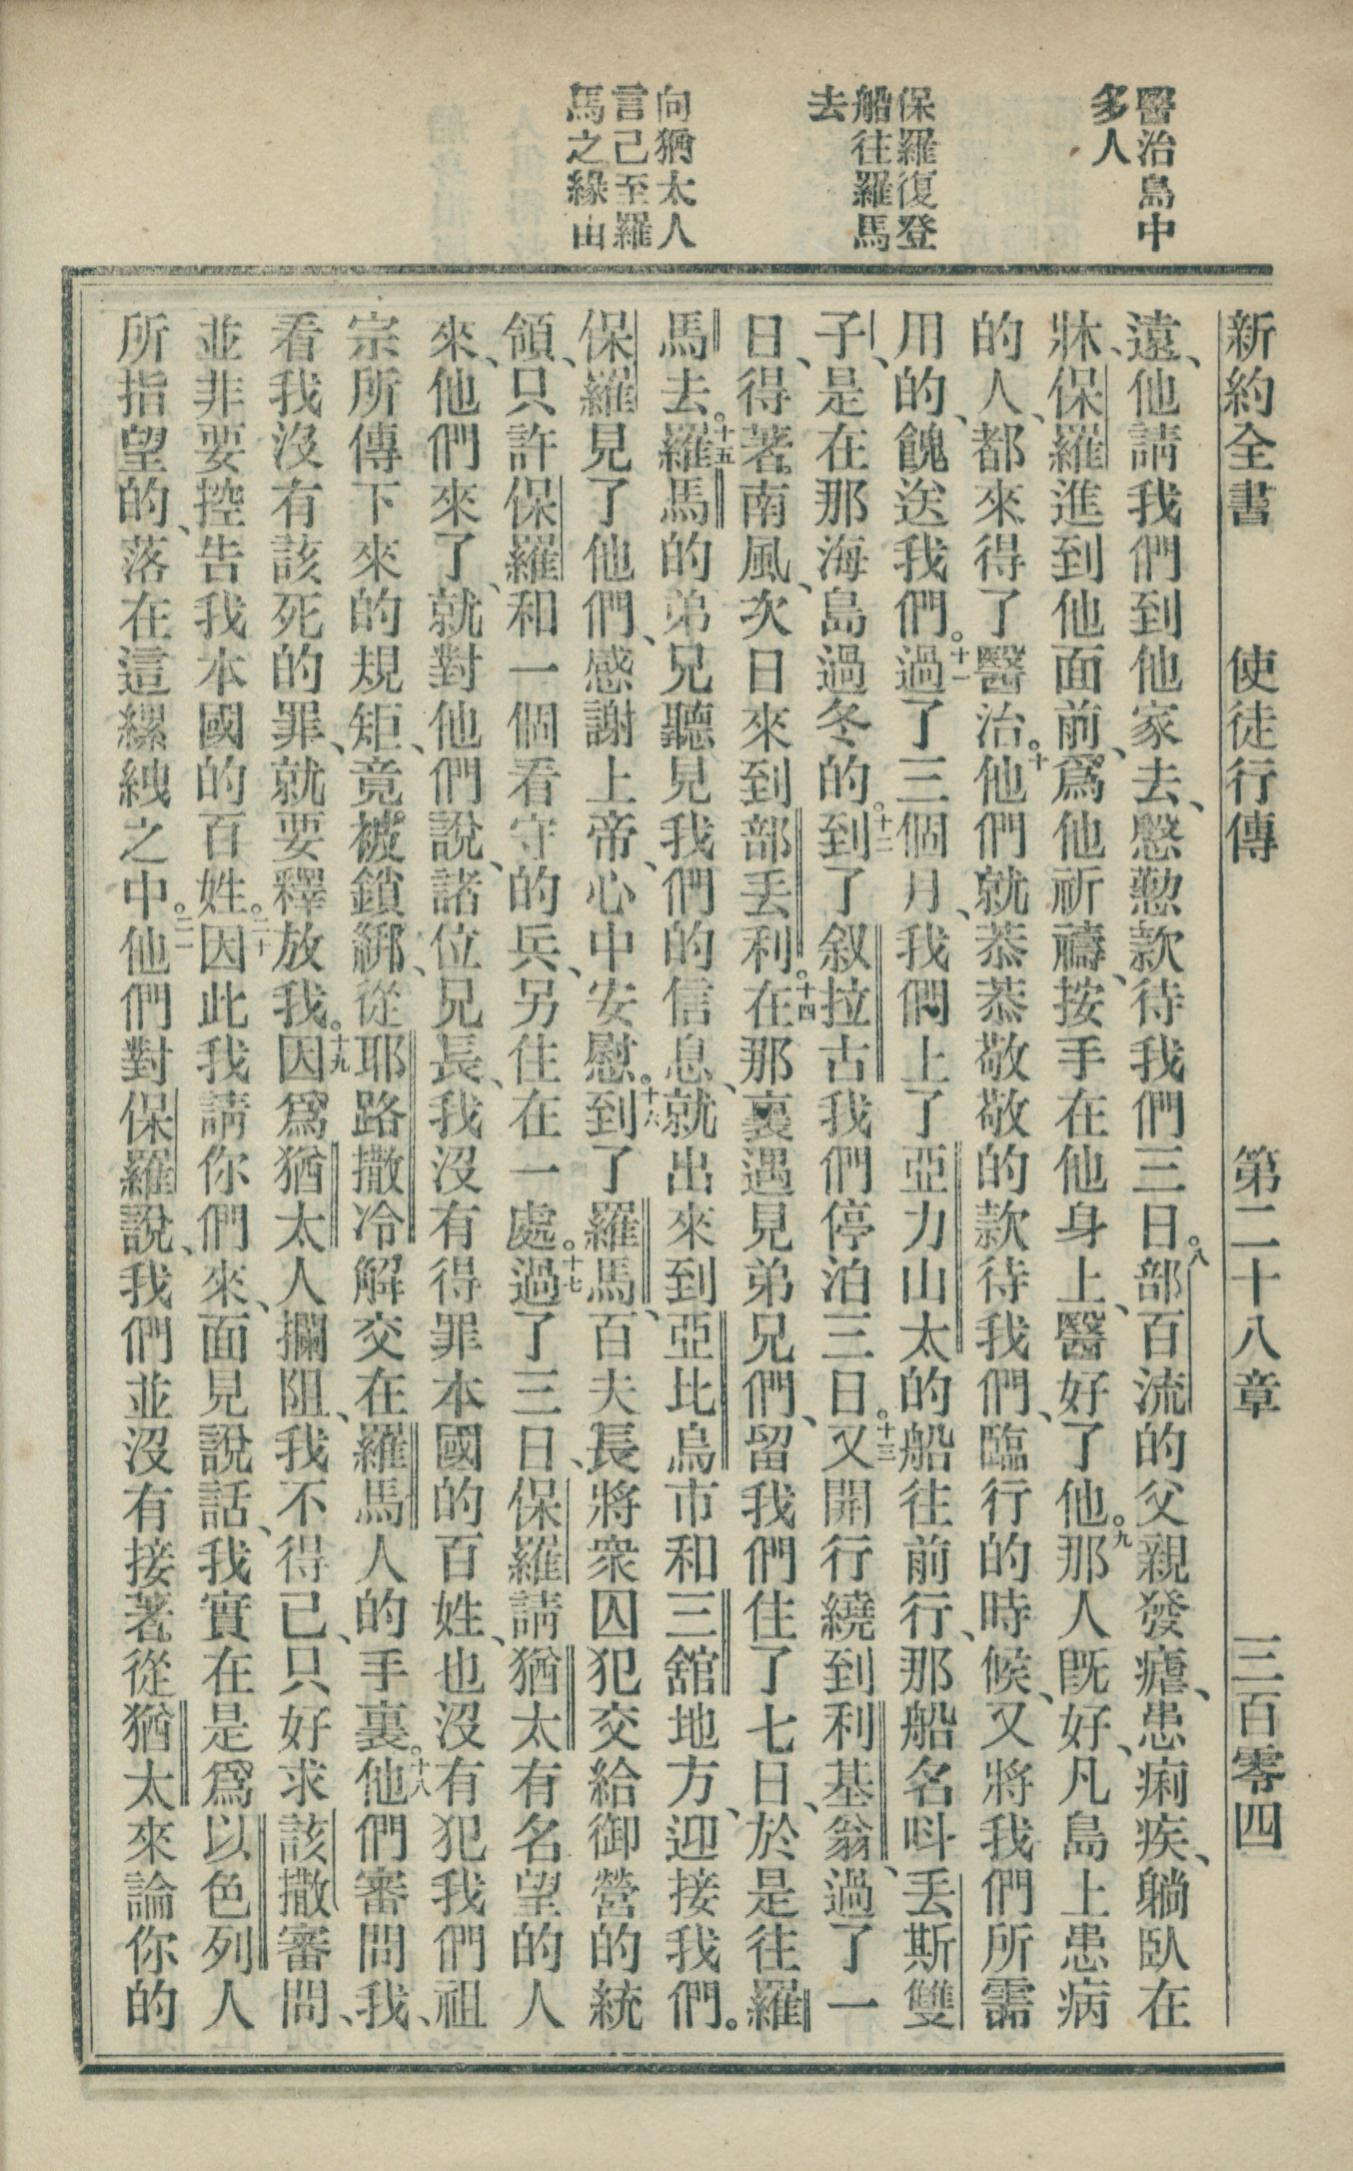 醫治島中
多人
保羅復登
船往羅馬
去
向猶太人
言己至羅
馬之緣由
新約全書 使徒行傳 第二十八章 三百零四
遠、他請我們到他家去、慇懃款待我們三日。八部百流的父親發瘧、患痢疾、躺臥在
牀、保羅進到他面前、爲他祈禱、按手在他身上、醫好了他。九那人既好、凡島上患病
的人、都來得了醫治。十他們就恭恭敬敬的款待我們、臨行的時候、又將我們所需
用的、餽送我們。十一過了三個月、我們上了亞力山太的船往前行、那船名呌丢斯雙
子、是在那海島過冬的。十二到了叙拉古我們停泊三日。十三又開行繞到利基翁、過了一
日、得著南風、次日來到部丢利。十四在那裏遇見弟兄們、留我們住了七日、於是往羅
馬去。十五羅馬的弟兄聽見我們的信息、就出來到亞比烏市和三舘地方、迎接我們。
保羅見了他們、感謝上帝、心中安慰。十六到了羅馬、百夫長將衆囚犯交給御營的統
領、只許保羅和一個看守的兵、另住在一處。十七過了三日、保羅請猶太有名望的人
來、他們來了、就對他們說、諸位兄長、我沒有得罪本國的百姓、也沒有犯我們祖
宗所傳下來的規矩、竟被鎖綁、從耶路撒冷解交在羅馬人的手裏。十八他們審問我、
看我沒有該死的罪、就要釋放我。十九因爲猶太人攔阻、我不得已、只好求該撒審問、
並非要控告我本國的百姓。二十因此我請你們來、面見說話、我實在是爲以色列人
所指望的、落在這縲絏之中。二一他們對保羅說、我們並沒有接著從猶太來論你的